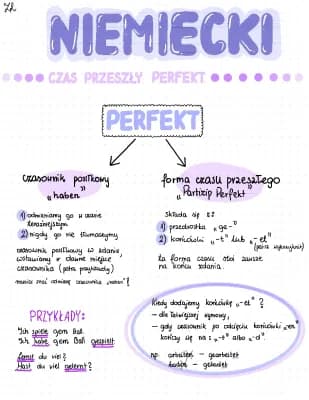 NIEMIECKI
CZAS PRZESZŁY PERFEKT
PERFEKT
czasownik posiłkowy
„haben”
1) odmieniamy go w czasie
teraźniejszym
2) nigdy go nie tłumaczymy
czasownik posiłkowy w zdaniu,
wstawiamy w dawne miejsce
czasownika (patrz przykłady)
musisz znać odmianę czasownika „haben”!
forma czasu przeszłego
„Partizip Perfekt”
składa się z:
1) przedrostka „ge-”
2) końcówki „-t” lub „-et”
(patrz wykrzyknik)
ta forma czasu stoi zawsze
na końcu zdania.
PRZYKŁADY:
Ich spiele gern Ball.
Ich habe gern Ball gespielt.
Lernst du viel?
Hast du viel gelernt?
Kiedy dodajemy końcówkę „-et”?
- dla łatwiejszej wymowy,
- gdy czasownik po odcięciu końcówki „en”
kończy się na: „-t” albo „-d”.
np. arbeiten - gearbeitet
baden - gebadet